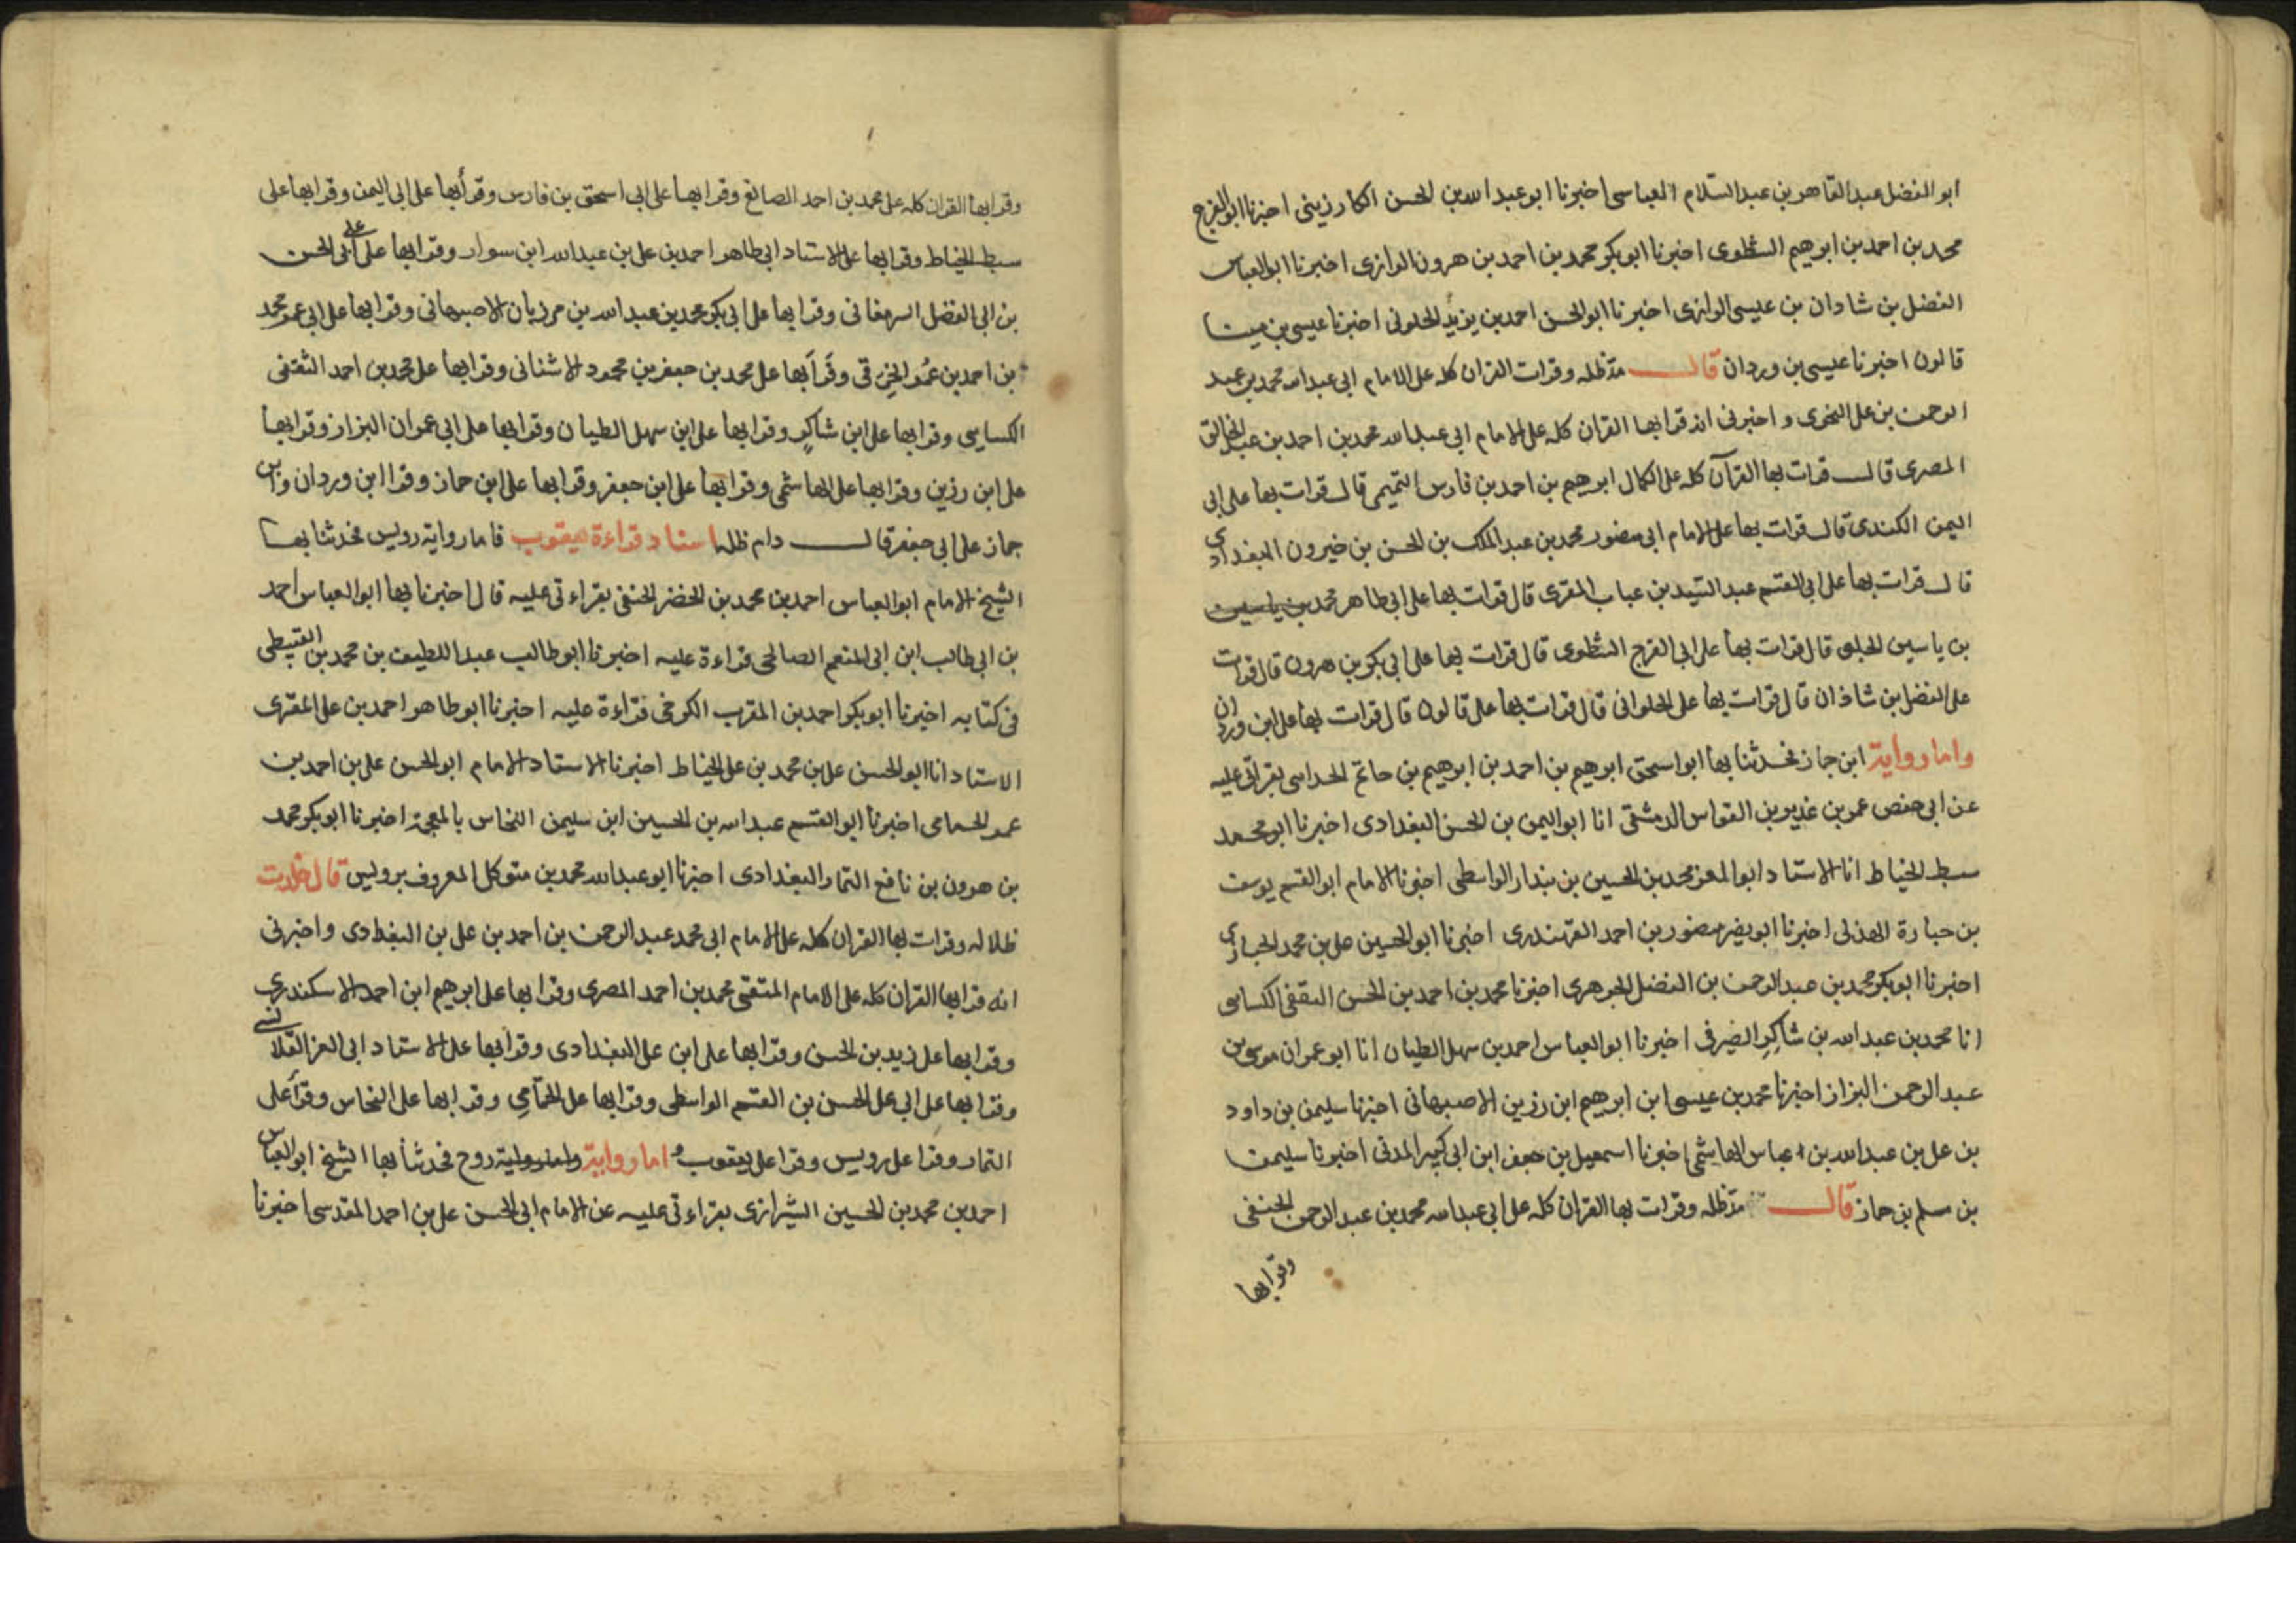 ابو الفضل عبد القاهر بن عبد السّلام العباسى اخبرنا ابو عبد الله بن الحسن الكارزينى اخبرنا ابو الفرج
محمد بن احمد بن ابرهيم الشطوى اخبرنا ابو بكر محمد بن احمد بن هرون الرازى اخبرنا ابو العباس
الفضل بن شادان بن عيسى الرازى اخبرنا ابو الحسن احمد بن يزيد الحلونى اخبرنا عيسى بن مينا
قالون اخبرنا عيسى بن وردان قال مدّ ظله وقرات القران كله على الامام ابى عبد الله محمد بن عبد
الرحمن بن على النحوى و اخبرنى انه قرا بها القران كله على الامام ابى عبد الله محمد بن احمد بن عبد الخالق
المصرى قال قرات بها القرآن كله على الكمال ابرهيم بن احمد بن فارس التميمى قال قرات بها على ابى
اليمن الكندى قال قرات بها على الامام ابى منصور محمد بن عبد الملك بن الحسن بن خيرون البغدادى
قال قرات بها على ابى القسم عبد السّيد بن عتاب المقرى قال قرات بها على ابى طاهر محمد بن ياسين
بن ياسين الحلبى قال قرات بها على ابى الفرج الشطوى قال قرات بها على ابى بكر بن هرون قال قرات
على الفضل بن شاذان قال قرات بها على الحلوانى قال قرات بها على قالون قال قرات بها على ابن وردان
واما رواية ابن جماز فحدثنا بها ابو اسحق ابرهيم بن احمد بن ابرهيم بن حاتم الحدامى بقراتى عليه
عن ابى حفص عمر بن غدير بن القواس الدمشقى انا ابو اليمن بن الحسن البغدادى اخبرنا ابو محمد
سبط الخياط انا الاستاد ابو المعز محمد بن الحسين بن بندار الواسطى اخبرنا الامام ابو القسم يوسف
بن جبارة الهذلى اخبرنا ابو نصر منصور بن احمد القهندرى اخبرنا ابو الحسين على بن محمد الخبازى
اخبرنا ابو بكر محمد بن عبد الرحمن بن الفضل الجوهرى اخبرنا محمد بن احمد بن الحسن الثقفى الكسايى
انا محمد بن عبد الله بن شاكر الصيرفى اخبرنا ابو العباس احمد بن سهل الطيان انا ابو عمران موسى بن
عبد الرحمن البزاز اخبرنا محمد بن عيسى ابن ابرهيم ابن رزين الاصبهانى اخبرنا سليمن بن داود
بن على بن عبد الله بن عباس الهاشمى اخبرنا اسمعيل بن جعفر ابن ابى كثير المدنى اخبرنا سليمن
بن مسلم بن جماز قال مدّ ظله وقرات بها القران كله على ابى عبد الله محمد بن عبد الرحمن الحنفى
وقرا بها
وقرا بها القران كله على محمد بن احمد الصائغ وقرا بها على ابى اسحق بن فارس وقرأ بها على ابى اليمن وقرا بها على
سبط الخياط وقرا بها على الاستاد ابى طاهر احمد بن على بن عبيد الله ابن سوار وقرا بها على ابى على الحسن
بن ابى الفضل الشرمغانى وقرا بها على ابى بكر محمد بن عبد الله بن مرزبان الاصبهانى وقرا بها على ابى عمر محمد
بن احمد بن عمر الخرقى وقرأ بها على محمد بن جعفر بن محمود الاشنانى وقرا بها على محمد بن احمد الثقفى
الكسايى وقرا بها على ابن شاكر وقرا بها على ابن سهل الطيان وقرا بها على ابى عمران البزاز وقرا بها
على ابن رزين وقرا بها على الهاشمى وقرا بها على ابن جعفر وقرا بها على ابن جماز وقرا ابن وردان وابن
جماز على ابى جعفر قال دام ظله اسناد قراءة يعقوب فاما رواية رويس فحدثنا بها
الشيخ الامام ابو العباس احمد بن محمد بن الخضر الحنفى بقراءتى عليه قال اخبرنا بها ابو العباس احمد
بن ابى طالب ابن ابى المنعم الصالحى قراءة عليه اخبرنا ابو طالب عبد اللطيف بن محمد بن القبيطى
فى كتابه اخبرنا ابو بكر احمد بن المقرب الكرخى قراءة عليه اخبرنا ابو طاهر احمد بن على المقرى
الاستاد انا ابو الحسن على بن محمد بن على الخياط اخبرنا الاستاد الامام ابو الحسن على بن احمد بن
عمر الحمامى اخبرنا ابو القسم عبد الله بن الحسين ابن سليمن النخاس بالمعجمة اخبرنا ابو بكر محمد
بن هرون بن نافع التمار البغدادى اخبرنا ابو عبد الله محمد بن متوكل المعروف برويس قال خلدت
ظلاله وقرات بها القران كله على الامام ابى محمد عبد الرحمن بن احمد بن على بن البغدادى واخبرنى
انه قرا بها القران كله على الامام المتقى محمد بن احمد المصرى وقرا بها على ابرهيم ابن احمد الاسكندرى
وقرا بها على زيد بن الحسن وقرا بها على ابن على البغدادى وقرا بها على الاستاد ابى العز القلانسى
وقرا بها على ابى على الحسن بن القسم الواسطى وقرا بها على الحمّامى وقرا بها على النخاس وقرأ على
التمار وقرا على رويس وقرا على يعقوب واما رواية روح فحدثنا بها الشيخ ابو العباس
احمد بن محمد بن الحسين الشيرازى بقراءتى عليه عن الامام ابى الحسن على بن احمد المقدسى اخبرنا